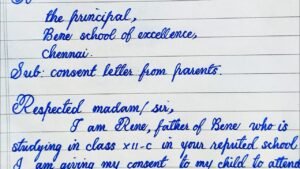 the principal,
Bene school of excellence,
Chennai.
Sub: consent letter from parents.
Respected madam/ sir,
I am Rene, father of Bene who is
studying in class XII-C in your reputed school
I am giving my consent to my child to attend